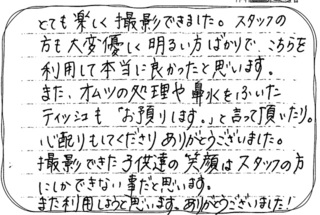 とても楽しく撮影できました。スタッフの
方も大変優しく明るい方ばかりで、こちらを
利用して本当に良かったと思います。
また、オムツの処理や鼻水をふいた
ティッシュも「お預りします。」と言って頂いたり。
心配りもしてくださりありがとうございました。
撮影できた子供達の笑顔はスタッフの方
にしかできない事だと思います。
また利用しようと思います。ありがとうございました!